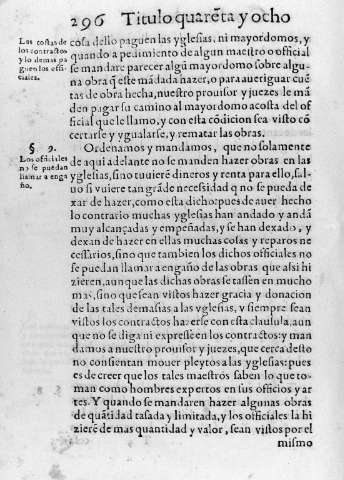 296 Titulo quarēta y ocho
Las costas de
los contractos
y lo demas pa
guen los offi-
ciales.
cosa dello paguen las yglesias, ni mayordomos, y
quando a pedimiento de algun maestro o official
se mandare parecer algū mayordomo sobre algu-
na obra q̄ este mādada hazer, o para aueriguar cuē
tas de obra hecha, nuestro prouisor y juezes le mā
den pagar su camino al mayordomo acosta del of
ficial que le llamo, y con esta cōdicion sea visto cō
certarse y ygualarse, y rematar las obras.
§. 9.
Los officiales
no se puedan
llamar a enga
ño.
Ordenamos y mandamos, que no solamente
de aqui adelante no se manden hazer obras en las
yglesias, sino tuuierē dineros y renta para ello, sal-
uo si vuiere tan grāde necessidad q no se pueda de
xar de hazer, como esta dicho: pues de auer hecho
lo contrario muchas yglesias han andado y andā
muy alcançadas y empeñadas, y se han dexado, y
dexan de hazer en ellas muchas cosas y reparos ne
cessarios, sino que tambien los dichos officiales no
se puedan llamar a engaño de las obras que assi hi
zieren, aunque las dichas obras se tassen en mucho
mas, sino que sean vistos hazer gracia y donacion
de las tales demasias a las yglesias, y siempre sean
vistos los contractos hazerse con esta clausula, aun
que no se diga ni expresse en los contractos: y man
damos a nuestro prouisor y juezes, que cerca desto
no consientan mouer pleytos a las yglesias: pues
es de creer que los tales maestros saben lo que to-
man como hombres expertos en sus officios y ar
tes. Y quando se mandaren hazer algunas obras
de quātidad tasada y limitada, y los officiales la hi
zierē de mas quantidad y valor, sean vistos por el
mismo